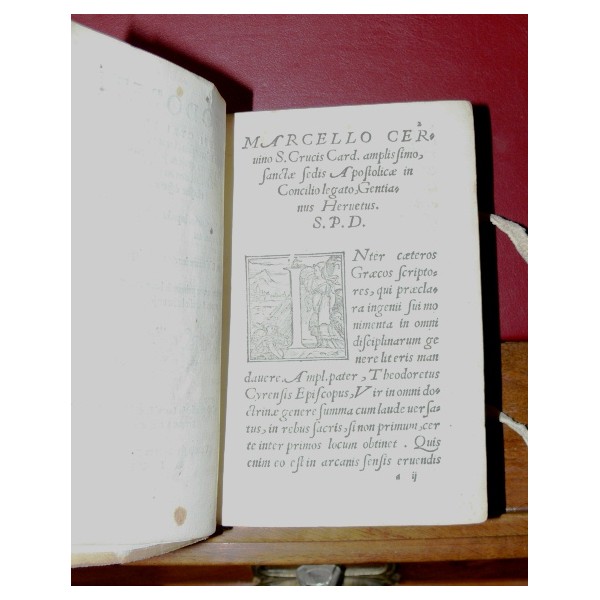 MARCELLO CER-
uino S. Crucis Card. amplissimo,
sanctæ sedis Apostolicæ in
Concilio legato, Gentia-
nus Heruetus.
S. P. D.
INter cæteros
Græcos scripto-
res, qui præcla-
ra ingenii sui mo
nimenta in omni
disciplinarum ge
nere literis man
dauere, Ampl. pater, Theodoretus
Cyrensis Episcopus, Vir in omni do-
ctrinæ genere summa cum laude uersa-
tus, in rebus sacris, si non primum, cer
te inter primos locum obtinet. Quis
enim eo est in arcanis sensis eruendis
a ij